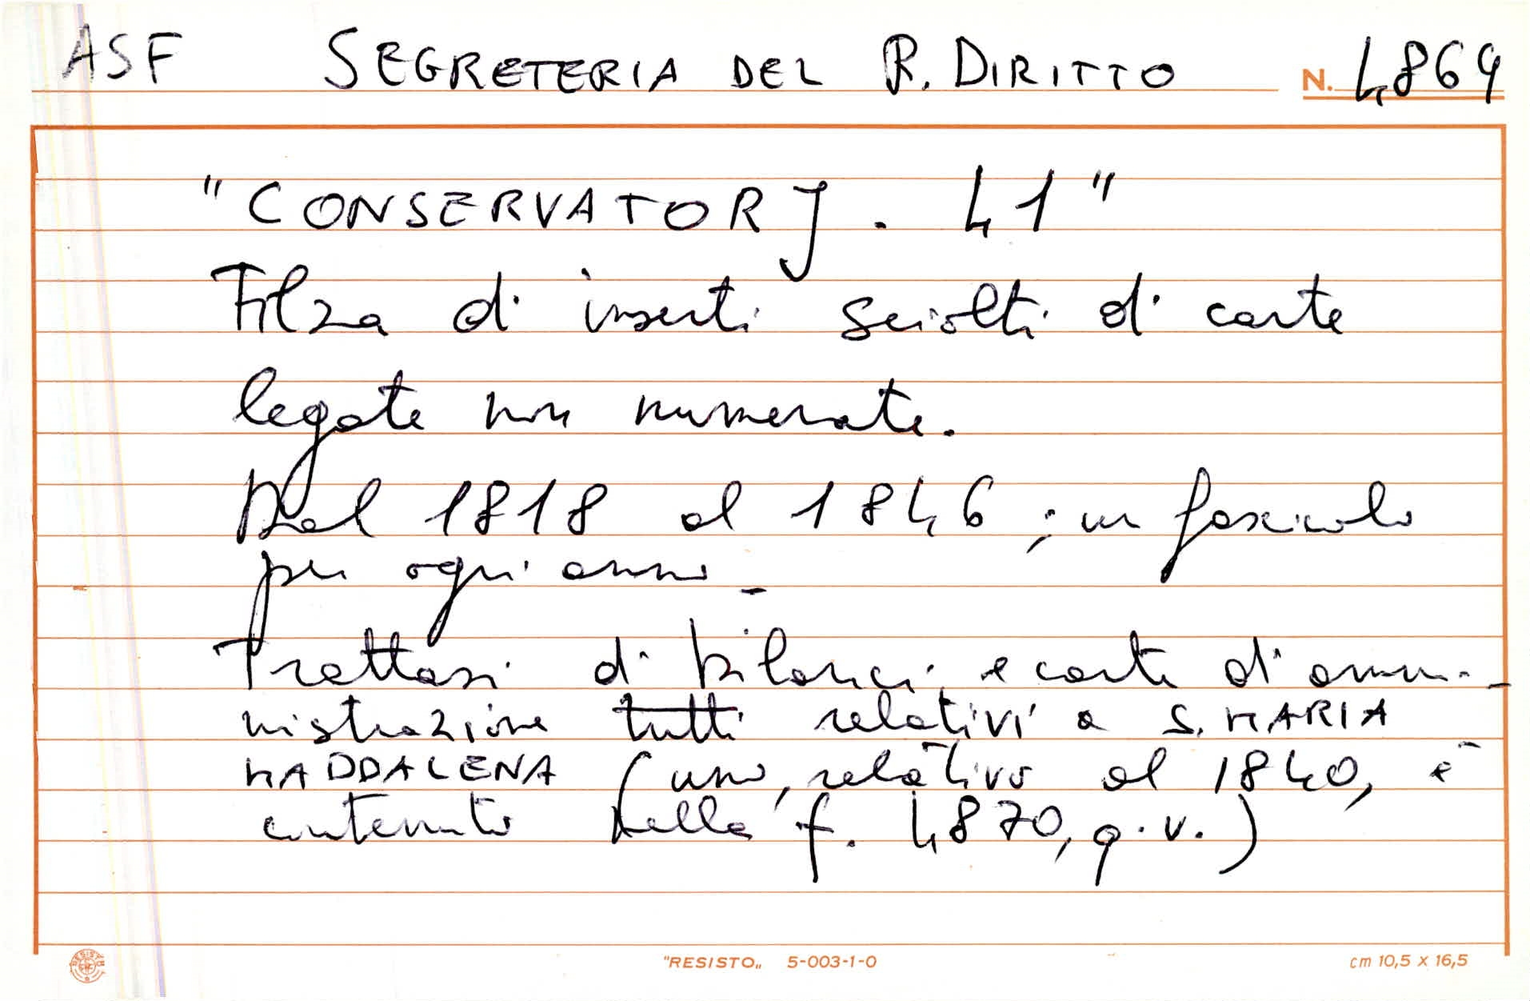 ASF SEGRETERIA DEL R. DIRITTO N. 4869
"CONSERVATORJ. 41"
Filza di inserti sciolti di carte
legate non numerate.
Dal 1818 al 1846; un fascicolo
per ogni anno_
Trattasi di bilanci e carte di ammi-
nistrazione tutti relativi a S. MARIA
MADDALENA (uno, relativo al 1840, è
contenuto nella f. 4870, q.v.)
"RESISTO„ 5-003-1-0 cm 10,5 x 16,5